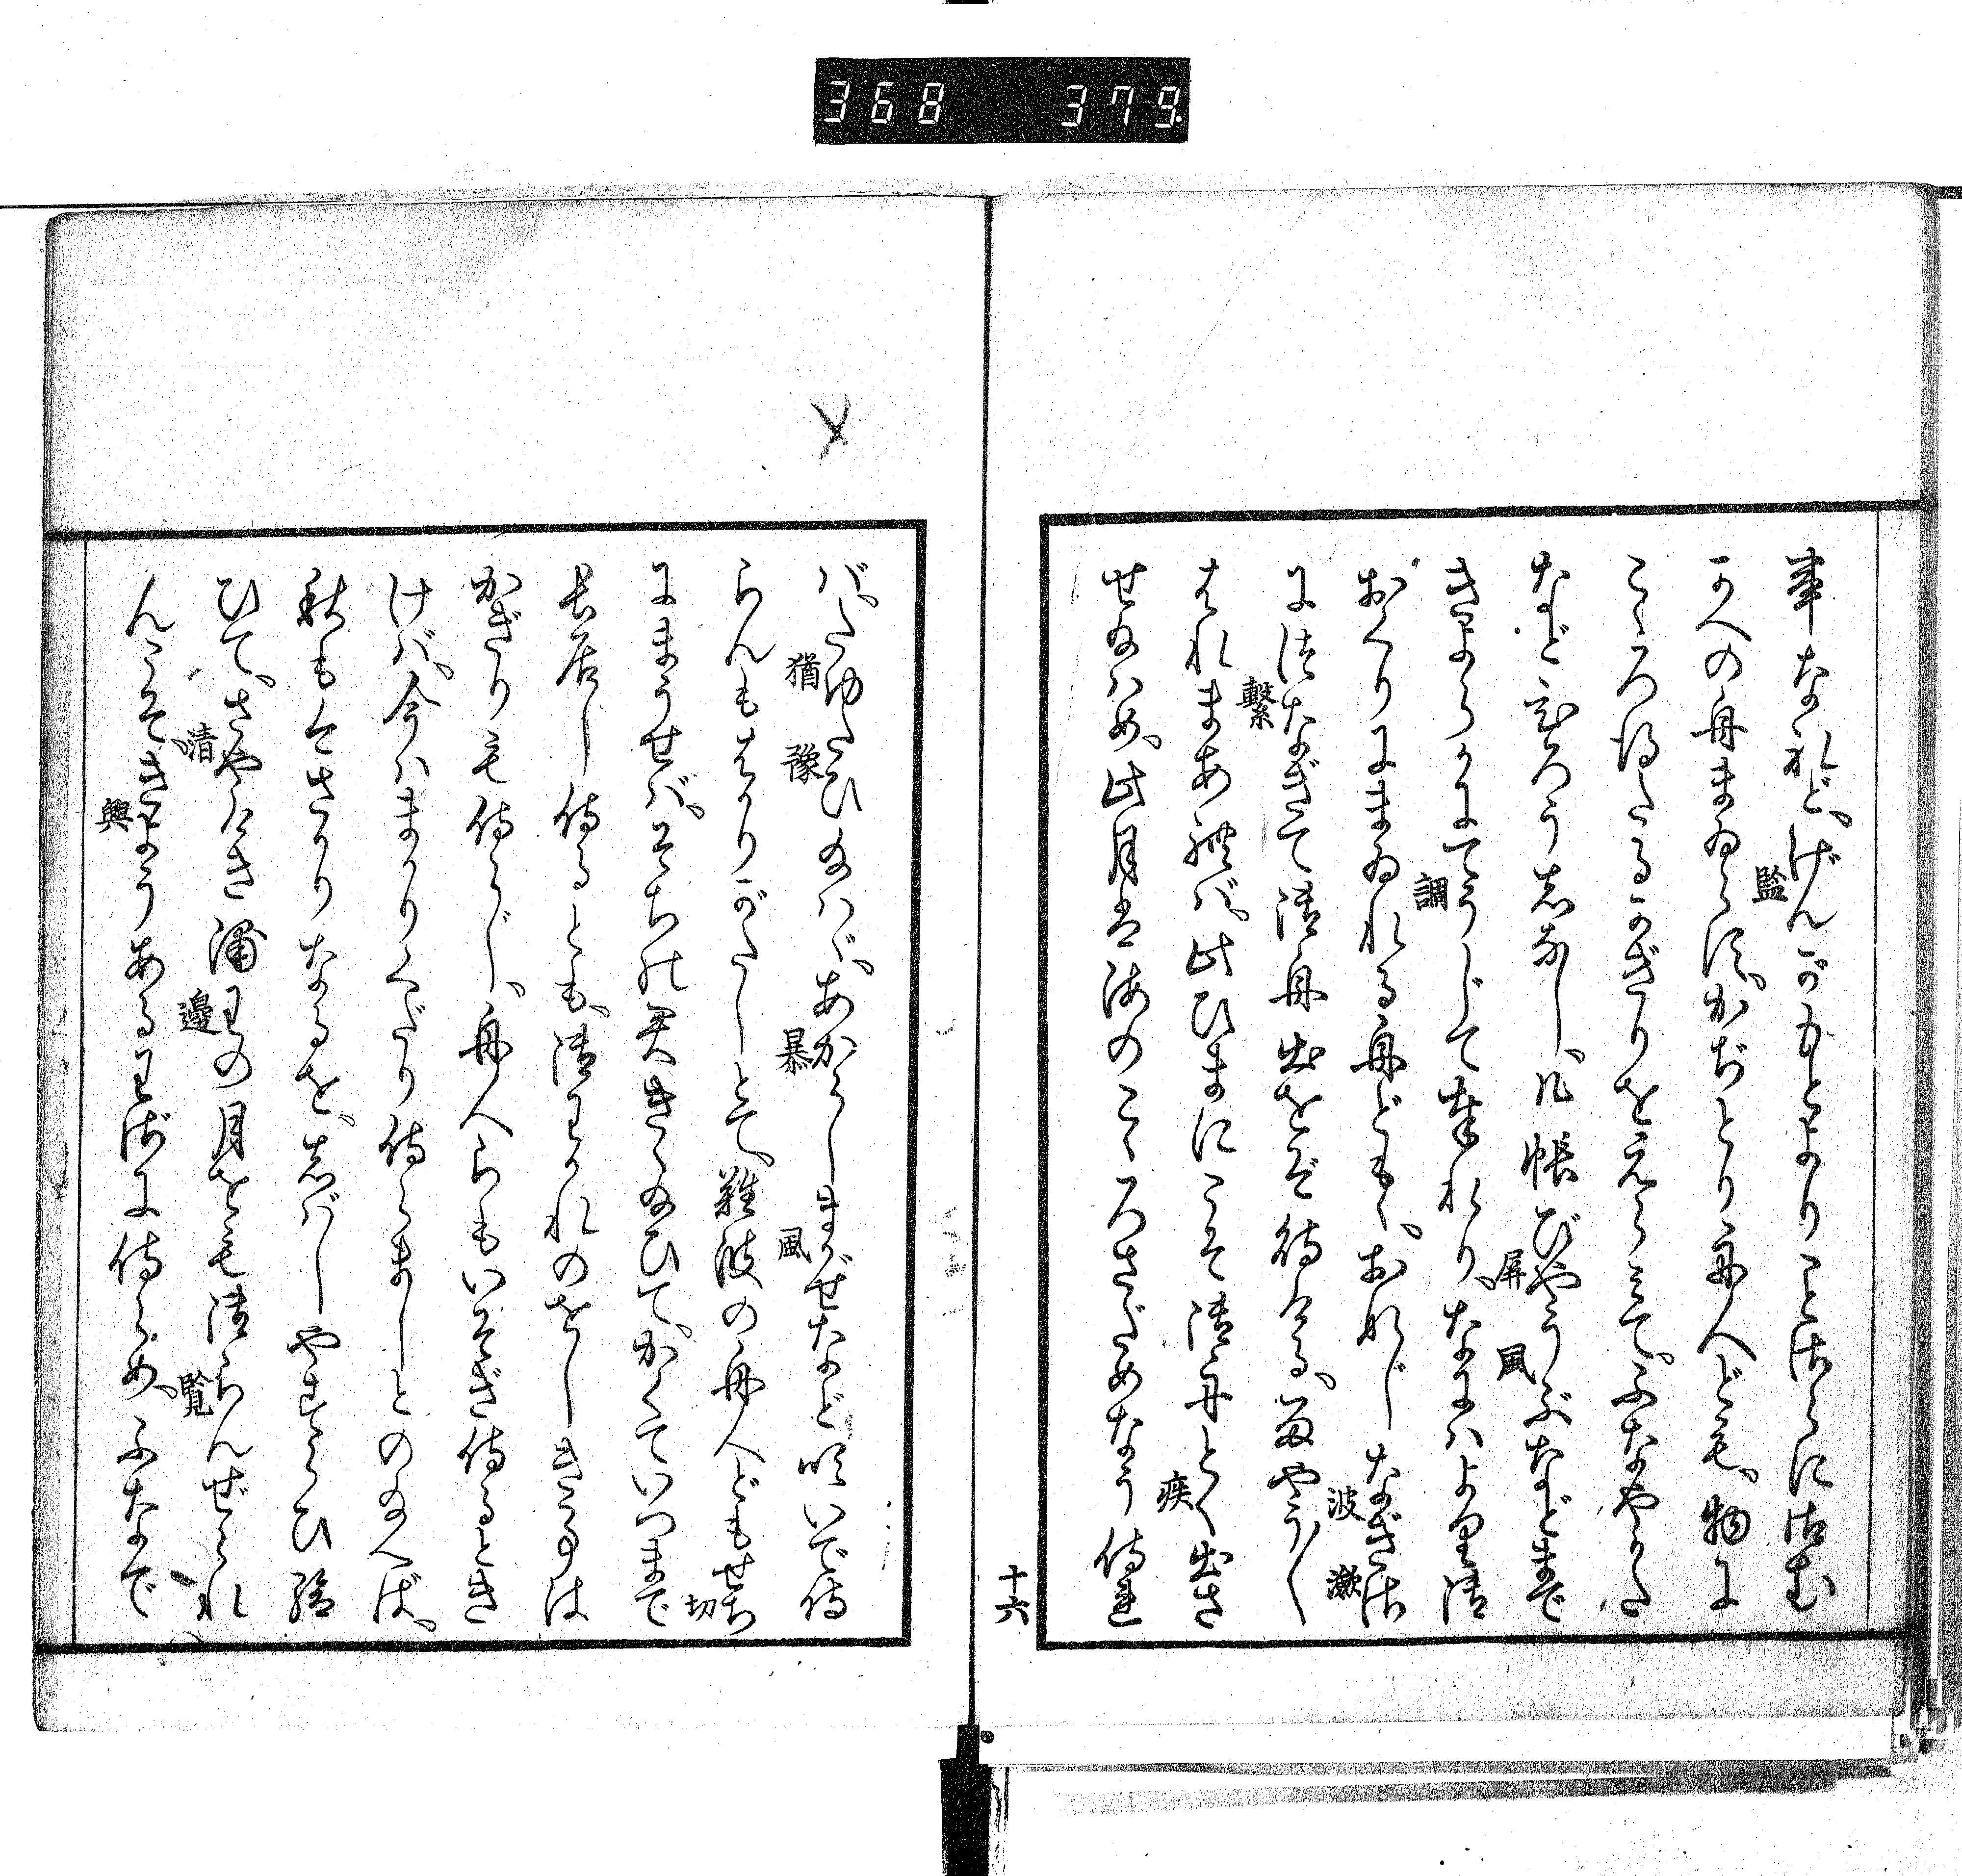 368 379
事なれど、げんがもとよりことさらにさむ
かへの舟まゐらす、かぢとり舟人ども、物に
こゝろ得たるかぎりをえらみて、ふなやかた
などひろうしなし、几帳びやうぶなどまで
きよらかにてうじて奉れり、なにはより御
おくりにまゐれる舟ども、おなじなぎさ
につなぎて御舟出をぞ待ける、雨やう〳〵
はれまあれば、此ひまにこそ御舟とく出さ
せ給はめ、此月は海のこゝろさだめなう侍れ
監
調
屏風
波瀲
繋
疾
十六
ば、たゆたひ給はゞ、あからしまかぜなど吹いで侍
らんもはかりがたしとて、難波の舟人どもせち
にまうせば、そち の君きゝ給ひて、かくていつまで
長居し侍るとも、御わかれのをしきことは
かぎりも侍らじ、舟人らもいそぎ侍るとき
けば、今はまかりくだり侍らましとのたまへば、
秋もけさかりなるを、しばしやすらひ給
ひて、さやけき浦わの月をも御らんぜられ
んこそ、きようあるわざに侍らめ、ふなで
猶豫
暴風
切
清
邊
覧
興